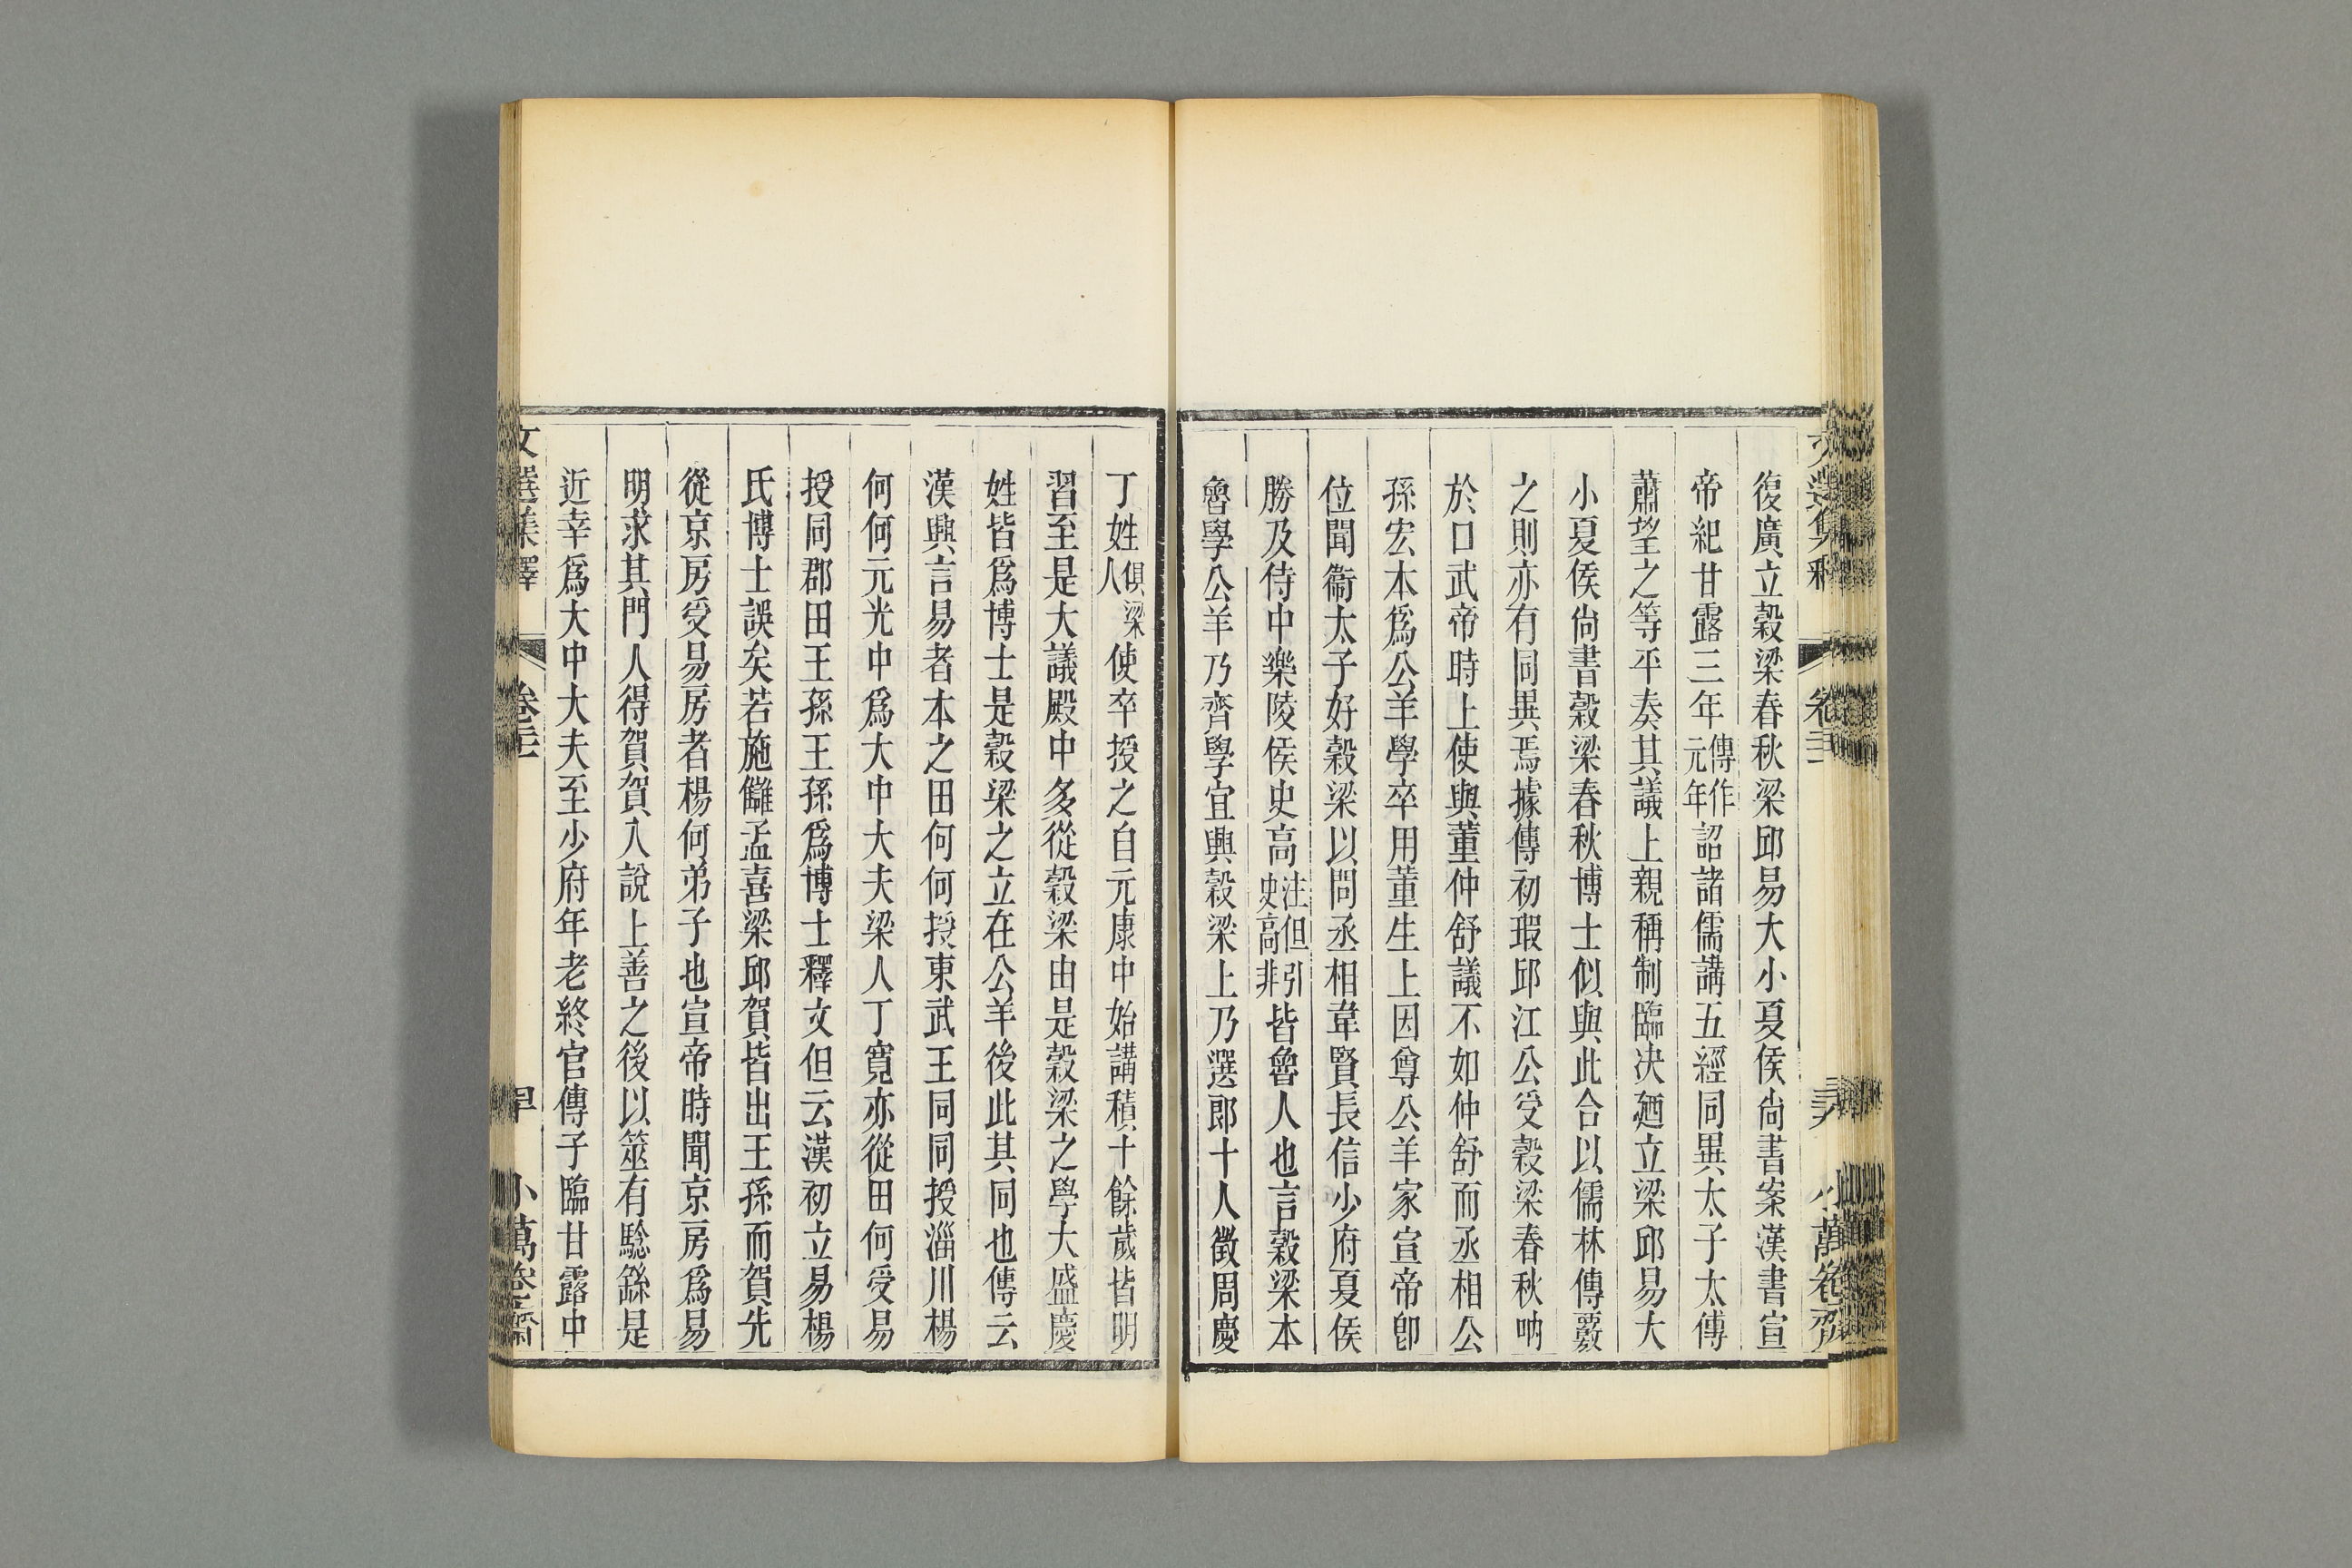 復廣立穀梁春秋梁邱易大小夏侯尙書案漢書宣
帝紀甘露三年傳作元年詔諸儒講五經同異太子太傅
蕭望之等平奏其議上親稱制臨決廼立梁邱易大
小夏侯尙書穀梁春秋博士似與此合以儒林傳覈
之則亦有同異焉據傳初瑕邱江公受穀梁春秋吶
於口武帝時上使與董仲舒議不如仲舒而丞相公
孫宏本爲公羊學卒用董生上因尊公羊家宣帝卽
位聞衞太子好穀梁以問丞相韋賢長信少府夏侯
勝及侍中樂陵侯史高注但引史高非皆魯人也言穀梁本
魯學公羊乃齊學宜興穀梁上乃選郎十人徵周慶
丁姓俱梁人使卒授之自元康中始講積十餘歲皆明
習至是大議殿中多從穀梁由是穀梁之學大盛慶
姓皆爲博士是穀梁之立在公羊後此其同也傳云
漢興言易者本之田何何授東武王同同授淄川楊
何何元光中爲大中大夫梁人丁寬亦從田何受易
授同郡田王孫王孫爲博士釋文但云漢初立易楊
氏博士誤矣若施讎孟喜梁邱賀皆出王孫而賀先
從京房受易房者楊何弟子也宣帝時聞京房爲易
明求其門人得賀賀入說上善之後以筮有驗繇是
近幸爲大中大夫至少府年老終官傳子臨甘露中
文選集釋 卷二十二 小萬卷齋